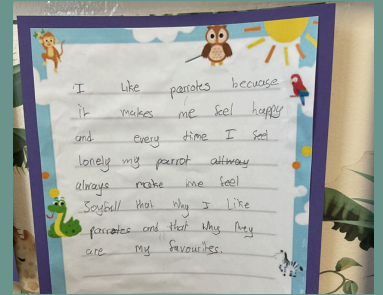 I like parrotes becuase
it makes me feel happy
and every time I feel
lonely my parrot allway
always make me feel
Joyfull that why I like
parrotes and that why they
are my favourites.